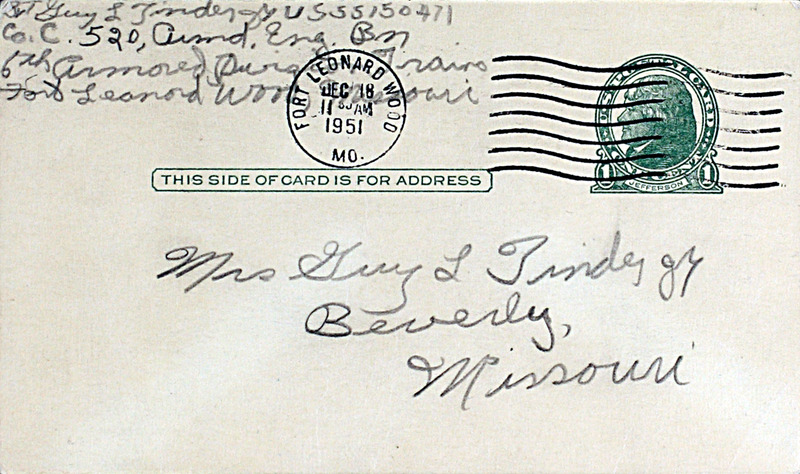 Pvt Guy L Tinder Jr US 55150471
Co. C. 520, Armd, Eng Bn
6th Armored Trains
Fort Leonard Wood Missouri
FORT LEONARD WOOD
DEC 18
11 30 AM
1951
MO.
THIS SIDE OF CARD IS FOR ADDRESS
1 JEFFERSON 1
Mrs Guy L Tinder Jr
Beverly,
Missouri